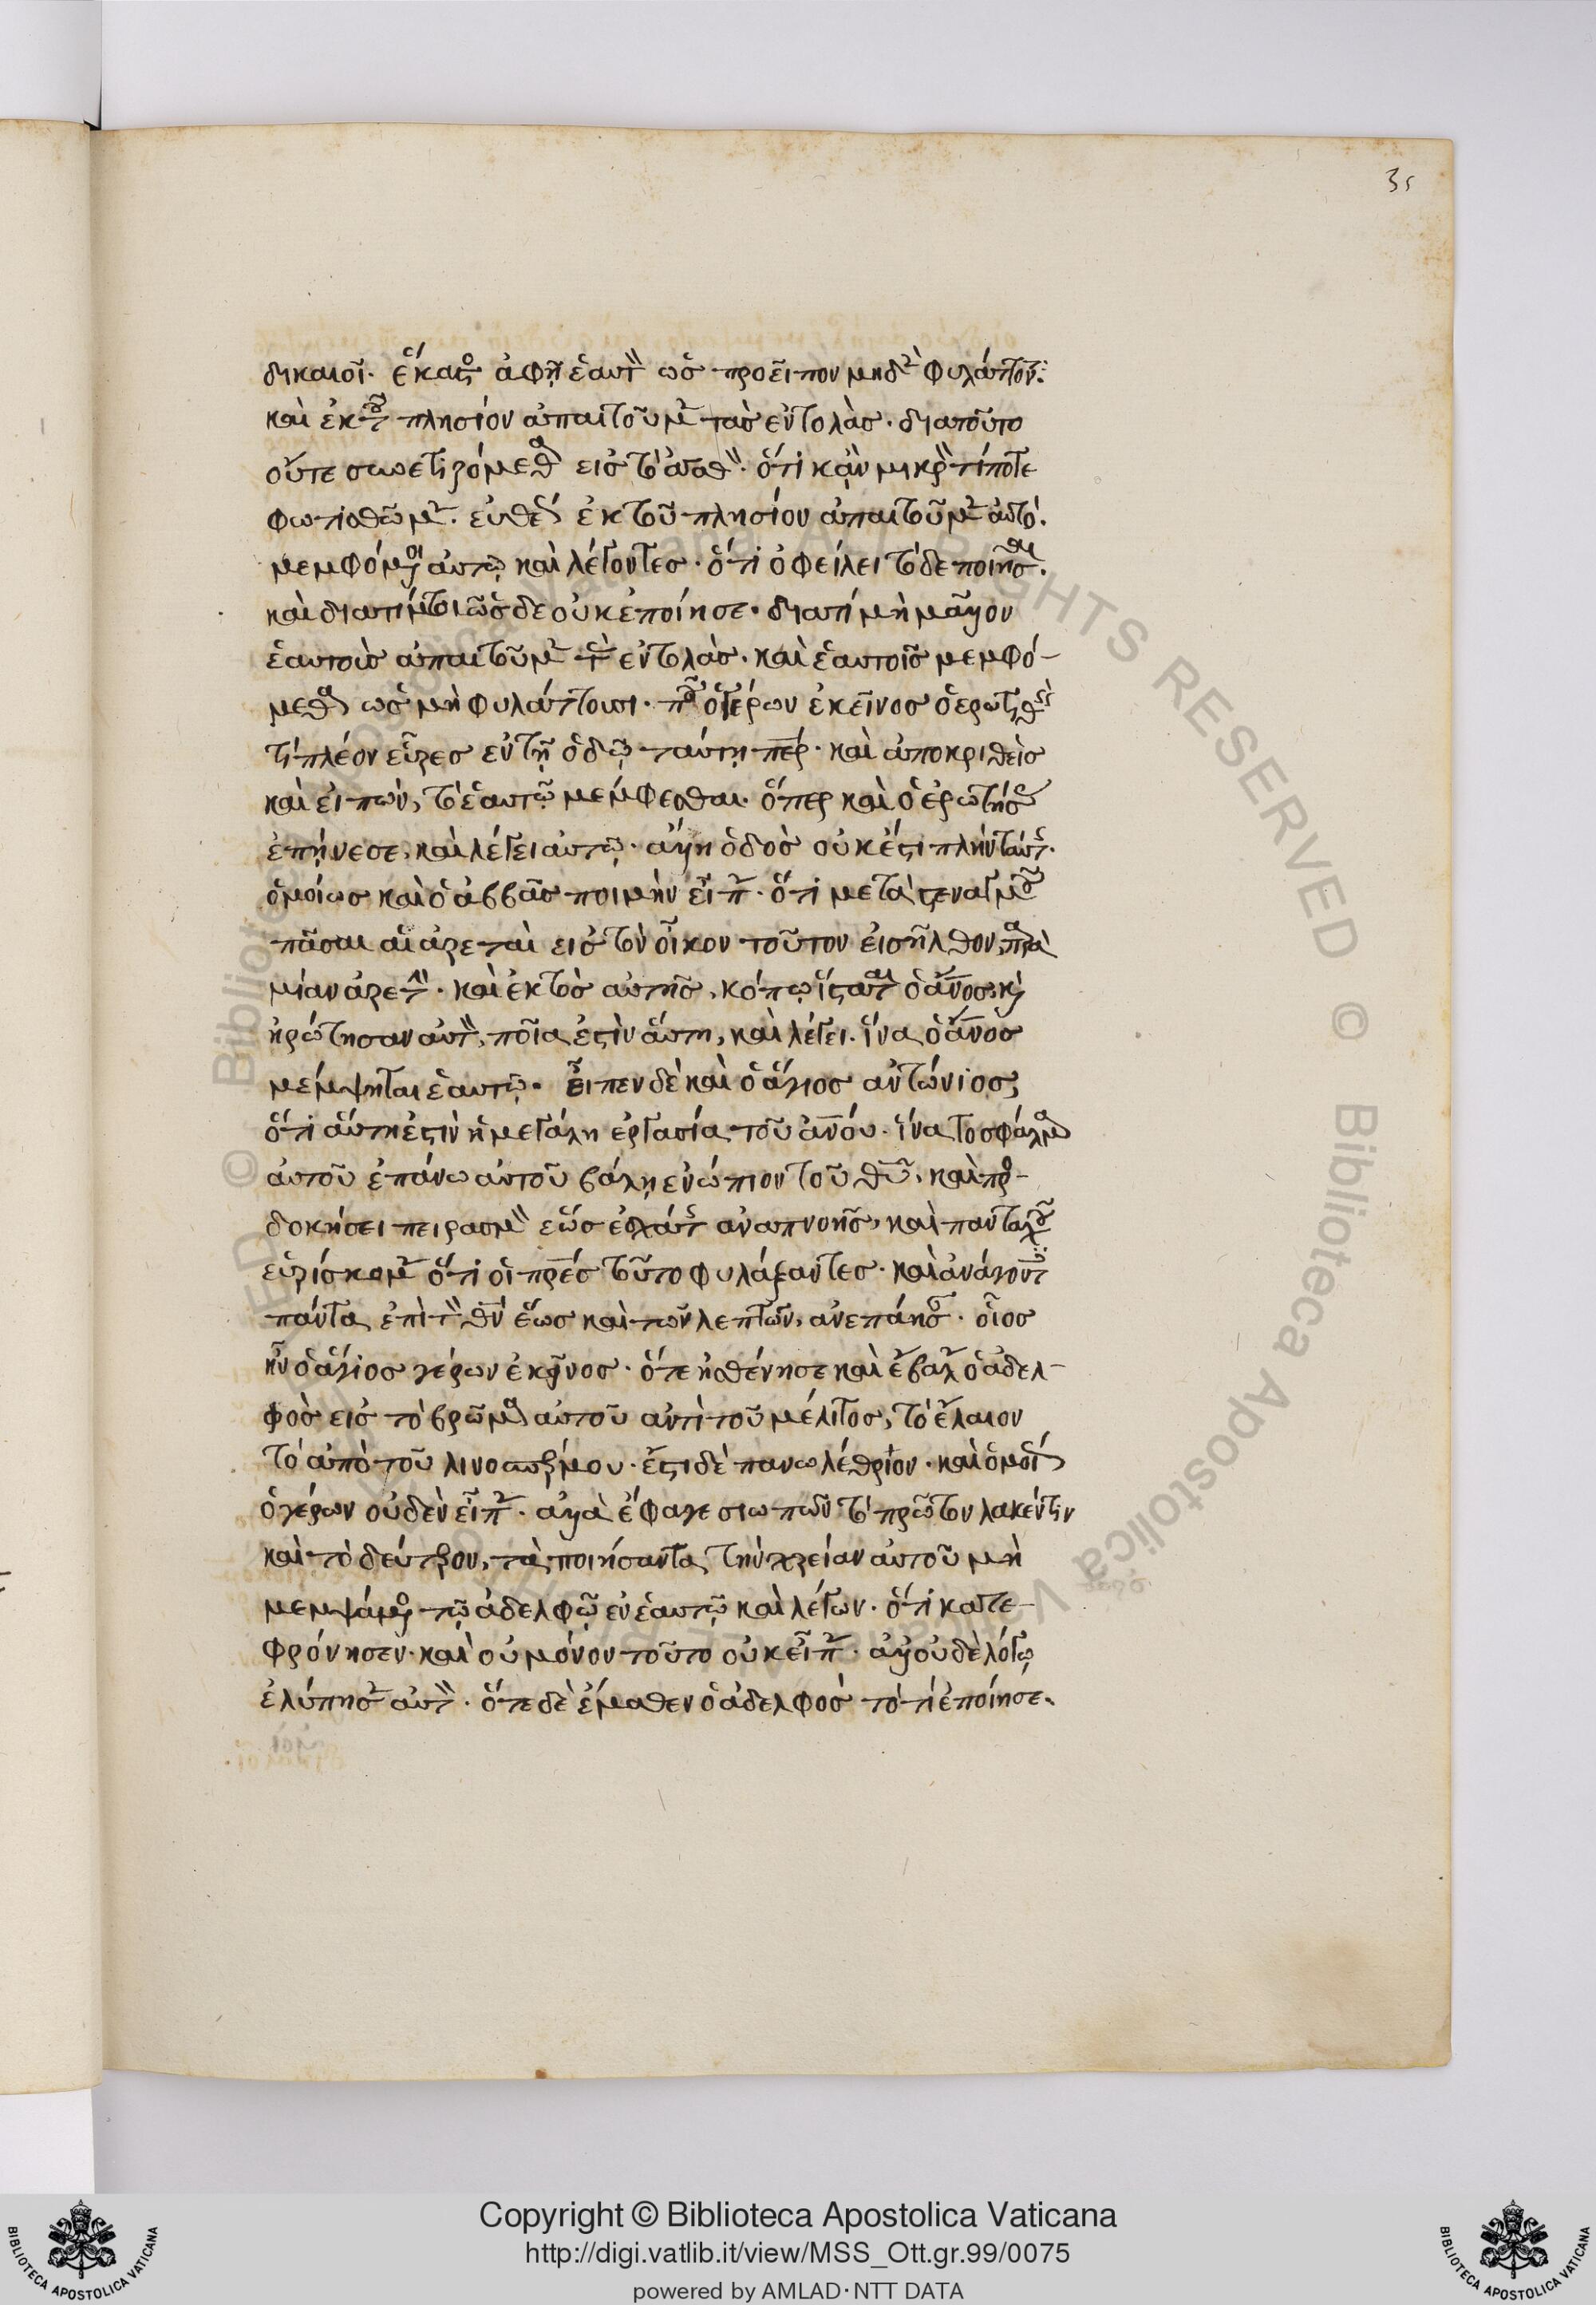 35
δικαιοῖ. ἕκαστος ἀφεὶς ἑαυτὸν ὡς προεῖπον μηδὲν φυλάττοντα
καὶ ἐκ τοῦ πλησίον ἀπαιτοῦμεν τὰς ἐντολὰς. διατοῦτο
οὔτε συνετιζόμεθα εἰς τὸ ἀγαθὸν. ὅτι κἂν μικρὸν τίποτε
φωτισθῶμεν. εὐθέως ἐκ τοῦ πλησίον ἀπαιτοῦμεν αὐτό.
μεμφόμενοι αὐτῷ καὶ λέγοντες. ὅτι ὀφείλει τόδε ποιῆσαι.
καὶ διατί τοιῶσδε οὐκ ἐποίησε. διατί μὴ μᾶλλον
ἑαυτοὺς ἀπαιτοῦμεν τὰς ἐντολὰς. καὶ ἑαυτοῖς μεμφό-
μεθα ὡς μὴ φυλάττουσι. ποῦ ὁ γέρων ἐκεῖνος ὁ ἐρωτηθεὶς
τί πλέον εὗρες ἐν τῇ ὁδῷ ταύτῃ πέρ. καὶ ἀποκριθεὶς
καὶ εἰπών, τὸ ἑαυτῷ μέμφεσθαι. ὅπερ καὶ ὁ ἐρωτήσας
ἐπῄνεσε, καὶ λέγει αὐτῷ. ἄλλη ὁδὸς οὐκ ἔστι πλὴν ταύτης.
ὁμοίως καὶ ὁ ἀββᾶς ποιμὴν εἶπεν. ὅτι μετὰ στεναγμοῦ
πᾶσαι αἱ ἀρεταὶ εἰς τὸν οἶκον τοῦτον εἰσῆλθον, παρὰ
μίαν ἀρετὴν. καὶ ἐκτὸς αὐτῆς, κόπῳ ἵσταται ὁ ἄνος. καὶ
ἠρώτησαν αὐτὸν, ποῖα ἐστὶν αὕτη, καὶ λέγει. ἵνα ὁ ἄνος
μέμψηται ἑαυτῷ. εἶπεν δὲ καὶ ὁ ἅγιος ἀντώνιος,
ὅτι αὕτη ἐστὶν ἡ μεγάλη ἐργασία τοῦ ἀνου. ἵνα το σφάλμα
αὐτοῦ ἐπάνω αὐτοῦ βάλῃ ἐνώπιον τοῦ θυ, καὶ προσ-
δοκήσει πειρασμὸν ἕως ἐσχάτης ἀναπνοῆς, καὶ πανταχοῦ
εὑρίσκομεν ὅτι οἱ πρες τοῦτο φυλάξαντες. καὶ ἀνάγοντες
πάντα ἐπὶ τὸν θν ἕως καὶ τῶν λεπτῶν, ἀνεπάησαν. οἷος
ἦν ὁ ἅγιος γέρων ἐκεῖνος. ὅτε ἠσθένησε καὶ ἔβαλεν ὁ ἀδελ-
φὸς εἰς τὸ βρῶμα αὐτοῦ ἀντὶ τοῦ μέλιτος, τὸ ἔλαιον
τὸ ἀπὸ τοῦ λινοσπέρμου. ἔστι δὲ πανωλέθριον. καὶ ὁμοίως
ὁ γέρων οὐδὲν εἶπεν. ἀλλὰ ἔφαγε σιωπῶν τὸ πρῶτον λακέντιν
καὶ τὸ δεύτερον, τὰ ποιήσαντα τὴν χρείαν αὐτοῦ μὴ
μεμψάμενος τῷ ἀδελφῷ ἐν ἑαυτῷ καὶ λέγων. ὅτι κατε-
φρόνησεν. καὶ οὐ μόνον τοῦτο οὐκ εἶπεν. ἀλλ' οὐδὲ λόγῳ
ἐλύπησεν αὐτὸν. ὅτε δὲ ἔμαθεν ὁ ἀδελφὸς τὸ τί ἐποίησε.
Copyright © Biblioteca Apostolica Vaticana
http://digi.vatlib.it/view/MSS_Ott.gr.99/0075
powered by AMLAD·NTT DATA